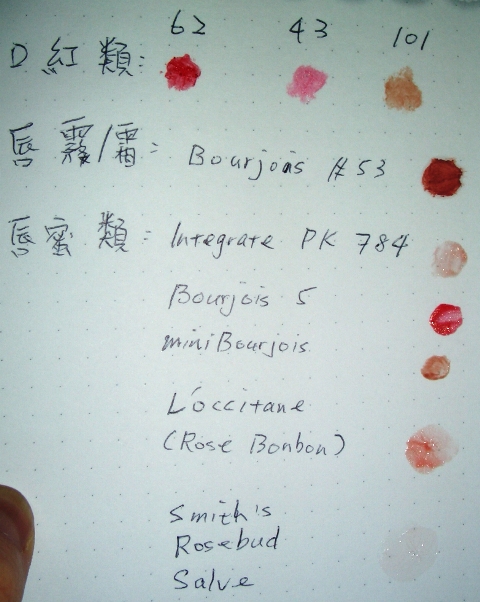 62 43 101
D 紅類:
唇霧/霜: Bourjois #53
唇蜜類: Integrate PK 784
Bourjois 5
mini Bourjois
L'occitane
(Rose Bonbon)
Smith's
Rosebud
Salve